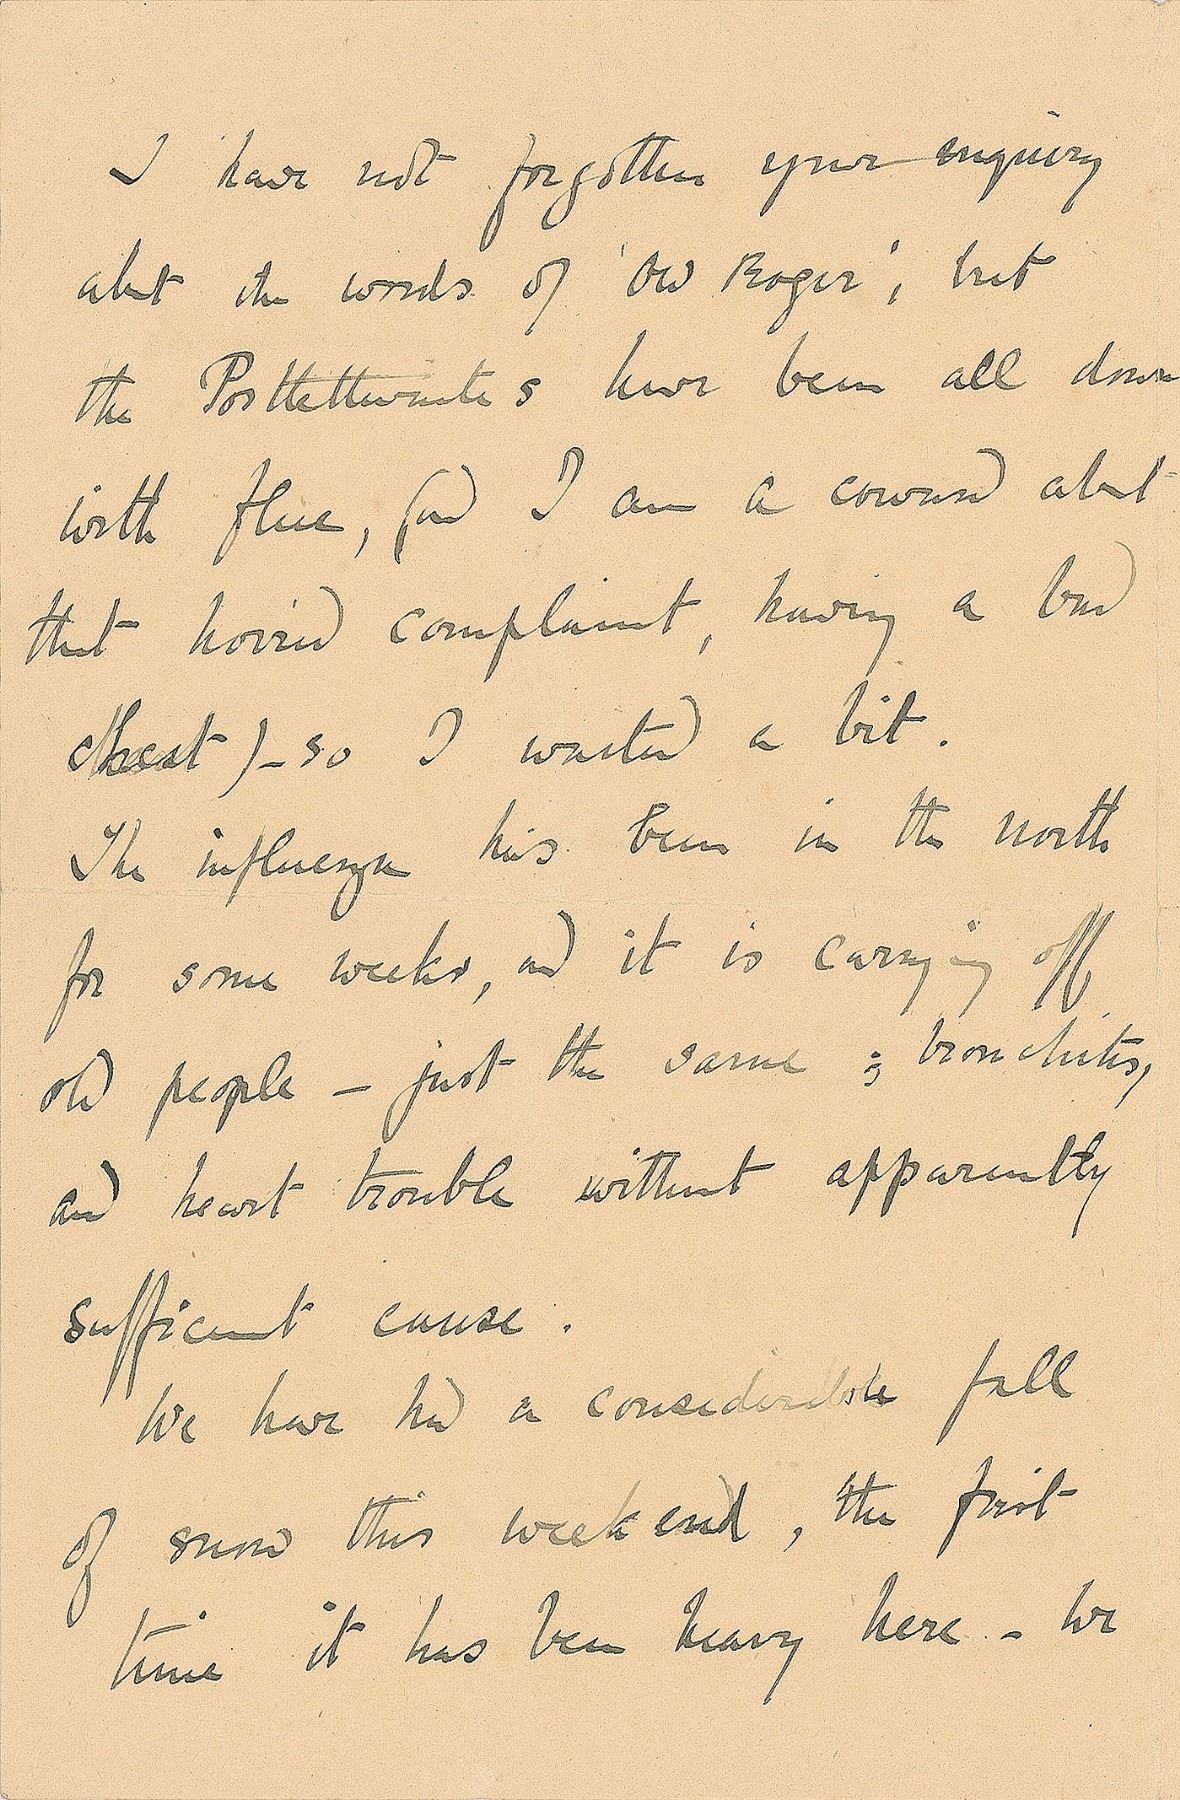 I have not forgotten your enquiry
about the words of 'Old Roger'; but
the Posttethwaites have been all down
with flue, (and I am a coward about
that horrid complaint, having a bad
chest) - so I waited a bit.
The influenza has been in the north
for some weeks, and it is carrying off
old people - just the same ; bronchitis,
and heart trouble without apparently
sufficient cause.
We have had a considerable fall
of snow this weekend, the first
time it has been heavy here - we